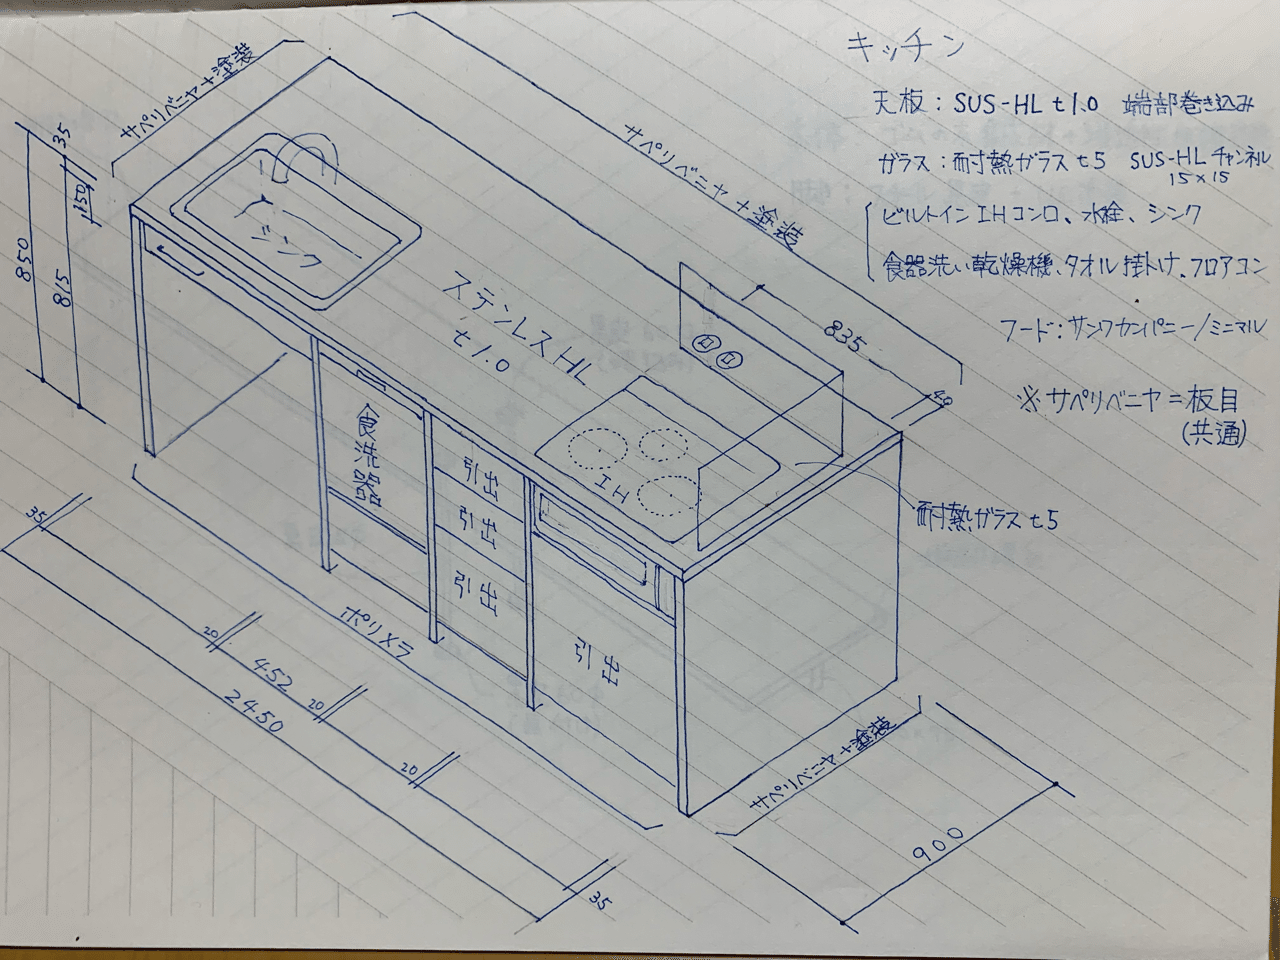 キッチン
天板：SUS-HL t1.0 端部巻き込み
ガラス：耐熱ガラス t5 SUS-HL チャンネル
15×15
ビルトイン IHコンロ、水栓、シンク
食器洗い乾燥機、タオル掛け、フロアコン
フード：サンワカンパニー/ミニマル
※ サペリベニヤ＝板目
(共通)
サペリベニヤ＋塗装
サペリベニヤ＋塗装
35
150
850
815
シンク
ステンレスHL
t1.0
835
40
IH
耐熱ガラス t5
食洗器
引出
引出
引出
引出
ポリメラ
サペリベニヤ＋塗装
35
20
452
20
2450
20
35
900